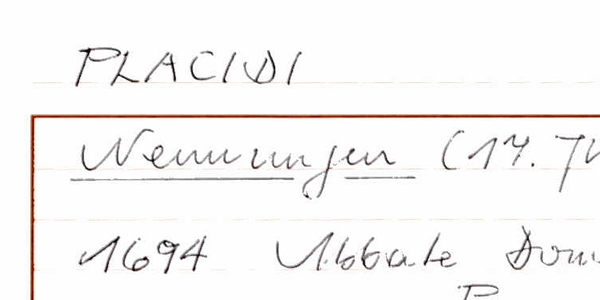 PLACIDI
Nennungen (17. Jh
1694 Abbate Dom